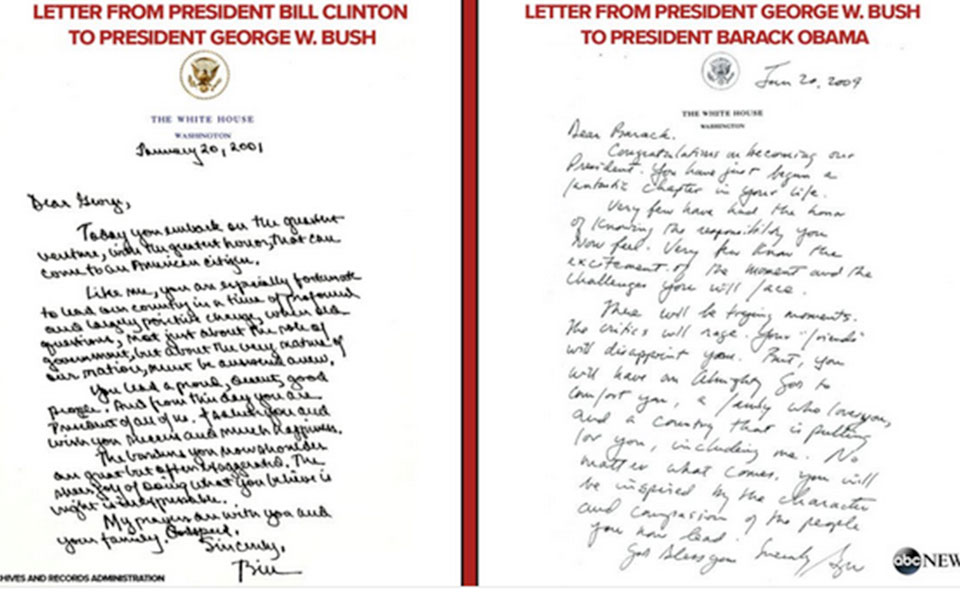 LETTER FROM PRESIDENT BILL CLINTON
TO PRESIDENT GEORGE W. BUSH
THE WHITE HOUSE
WASHINGTON
January 20, 2001
Dear George,
Today you embark on the greatest
venture, with the greatest honor, that can
come to an American citizen.
Like me, you are especially fortunate
to lead our country in a time of profound
and largely positive change, when old
questions, not just about the role of
government, but about the very nature of
our nation, must be answered anew.
You lead a proud, decent, good
people. And from this day you are
President of all of us. I salute you and
wish you success and much happiness.
The burdens you now shoulder
are great but often exaggerated. The
sheer joy of doing what you believe is
right is inexpressible.
My prayers are with you and
your family. Godspeed.
Sincerely,
Bill
HIVES AND RECORDS ADMINISTRATION
LETTER FROM PRESIDENT GEORGE W. BUSH
TO PRESIDENT BARACK OBAMA
Jan 20, 2009
THE WHITE HOUSE
WASHINGTON
Dear Barack,
Congratulations on becoming our
President. You have just begun a
fantastic chapter in your life.
Very few have had the honor
of knowing the responsibility you
now feel. Very few know the
excitement of the moment and the
challenges you will face.
There will be trying moments.
The critics will rage. Your "friends"
will disappoint you. But, you
will have an Almighty God to
comfort you, a family who loves you,
and a country that is pulling
for you, including me. No
matter what comes, you will
be inspired by the character
and compassion of the people
you now lead.
God bless you
Sincerely,
abc NEW